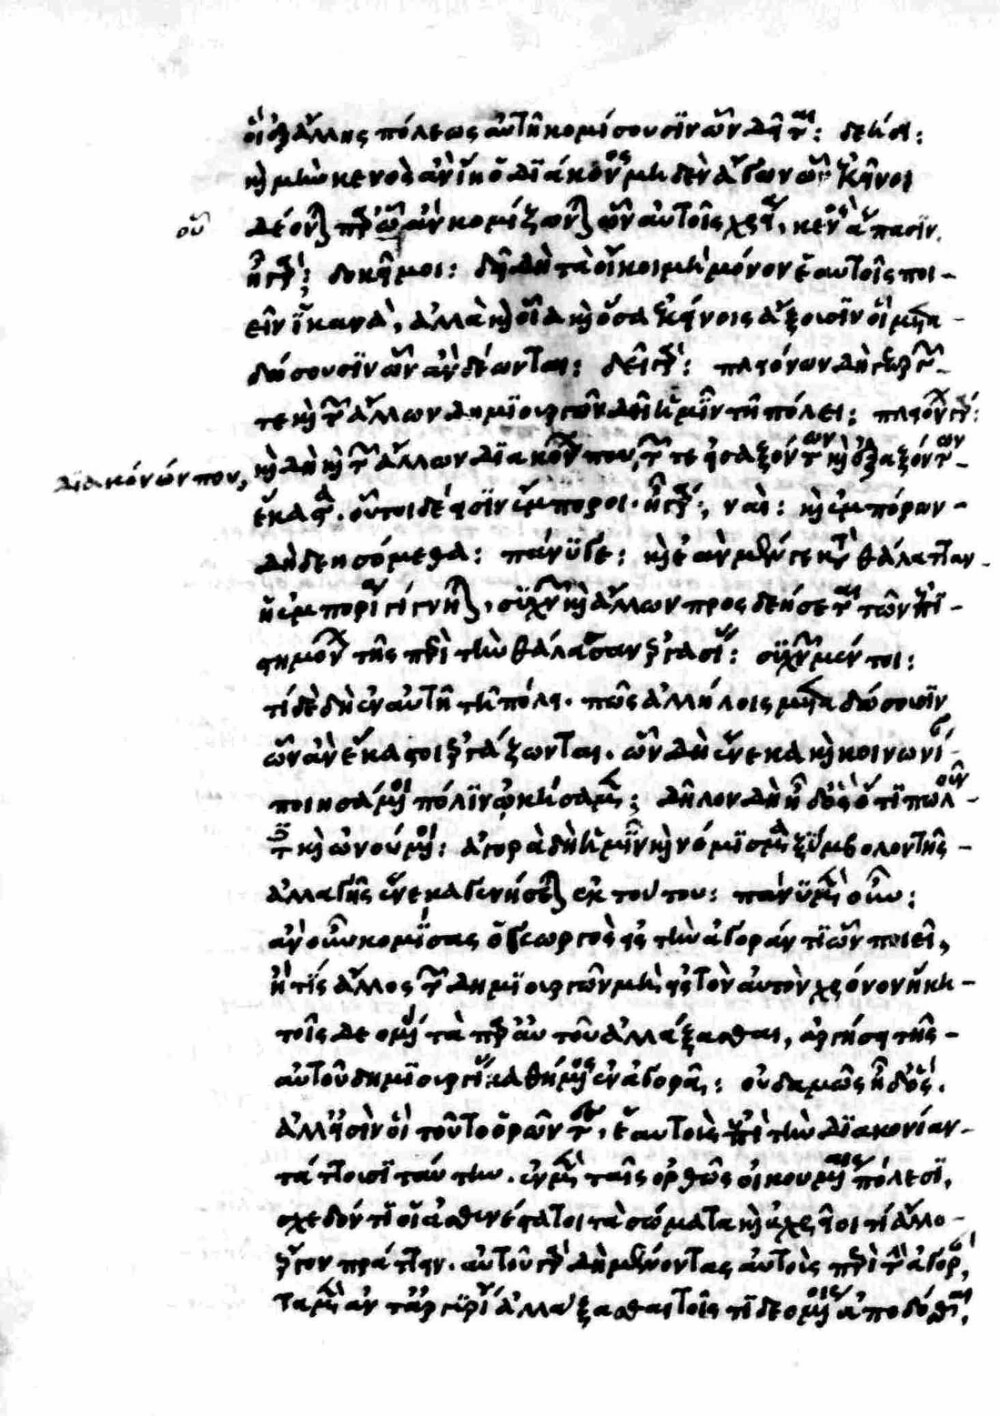 οἳ ἐξ ἄλλης πόλεως αὐτῇ κομίσουσϊν ὧν δεῖται: δεήσει:
καὶ μὴν κενὸς ἂν ἴη ὁ διάκονος μηδὲν ἄγων ὧν ἐκεῖνοι
οὗ δέονται παρ' ὧν ἂν κομίζωνται ὧν αὐτοῖς χρεία, κενὸς ἄπασϊν.
ἢ γάρ; δοκεῖ μοι: δεῖ δὴ τὰ οἴκοι μὴ μόνον ἑαυτοῖς ποι-
εῖν ἱκανὰ, ἀλλὰ καὶ οἷα καὶ ὅσα ἐκείνοις ἄξουσιν οἳ μετα-
δώσουσϊν ὧν ἂν δέωνται: δεῖ γάρ: πλειόνων δὴ γεωργῶν
τε καὶ τῶν ἄλλων δημϊουργῶν δεῖ ἡμῖν τῇ πόλει: πλειόνων γάρ:
δϊακόνων που, καὶ δὴ καὶ τῶν ἄλλων δϊακόνων που, τῶν τε εἰσαξόντων καὶ ἐξαξόντων
ἕκαστα. οὗτοι δέ εἰσϊν ἔμποροι. ἢ γάρ; ναὶ: καὶ ἐμπόρων
δὴ δεησόμεθα: πάνυ γε: καὶ ἐὰν μέν γε κατὰ θάλατταν
ἡ ἐμπορία γίγνηται, συχνῶν καὶ ἄλλων προσδεήσεται τῶν ἐπϊ-
στημόνων τῆς περὶ τὴν θάλασσαν ἐργασίας: συχνῶν μέν τοι:
τί δὲ δὴ ἐν αὐτῇ τῇ πόλει. πῶς ἀλλήλοις μεταδώσουσϊν
ὧν ἂν ἕκαστοι ἐργάζωνται. ὧν δὴ ἕνεκα καὶ κοινωνίαν
ποιησάμενοι πόλϊν ᾠκήσαμεν; δῆλον δὴ ἦ δ' ὃς ὅτι πωλοῦν
τες καὶ ὠνούμενοι: ἀγορὰ δὴ ἡμῖν καὶ νόμϊσμα ξύμβολον τῆς
ἀλλαγῆς ἕνεκα γενήσεται ἐκ τούτου: πάνυ μὲν οὖν:
ἂν οὖν κομίσας ὁ γεωργὸς εἰς τὴν ἀγοράν τι ὧν ποιεῖ,
ἤ τις ἄλλος τῶν δημϊουργῶν μὴ εἰς τὸν αὐτὸν χρόνον ἥκη
τοῖς δεομένοις τὰ παρ' αὐτοῦ ἀλλάξασθαι, ἀργήσει τῆς
αὐτοῦ δημϊουργίας καθήμενος ἐν ἀγορᾷ: οὐδαμῶς ἦ δ' ὅς.
ἀλλ' εἰσὶν οἳ τοῦτο ὁρῶντες, ἑαυτοὺς ἐπὶ τὴν δϊακονίαν
τάττουσϊ ταύτην. ἐν μὲν ταῖς ὀρθῶς οἰκουμέναις πόλεσϊ,
σχεδόν τι οἱ ἀσθενέστατοι τὰ σώματα καὶ ἀχρεῖοι τί ἄλλο
ἔργον πράττειν. αὐτοῦ γὰρ δεῖ μένοντας αὐτοὺς περὶ τὴν ἀγορὰν,
τὰ μὲν ἀντ' ἀργυρίου ἀλλάξασθαι τοῖς τι δεομένοις ἀποδόσθαι,